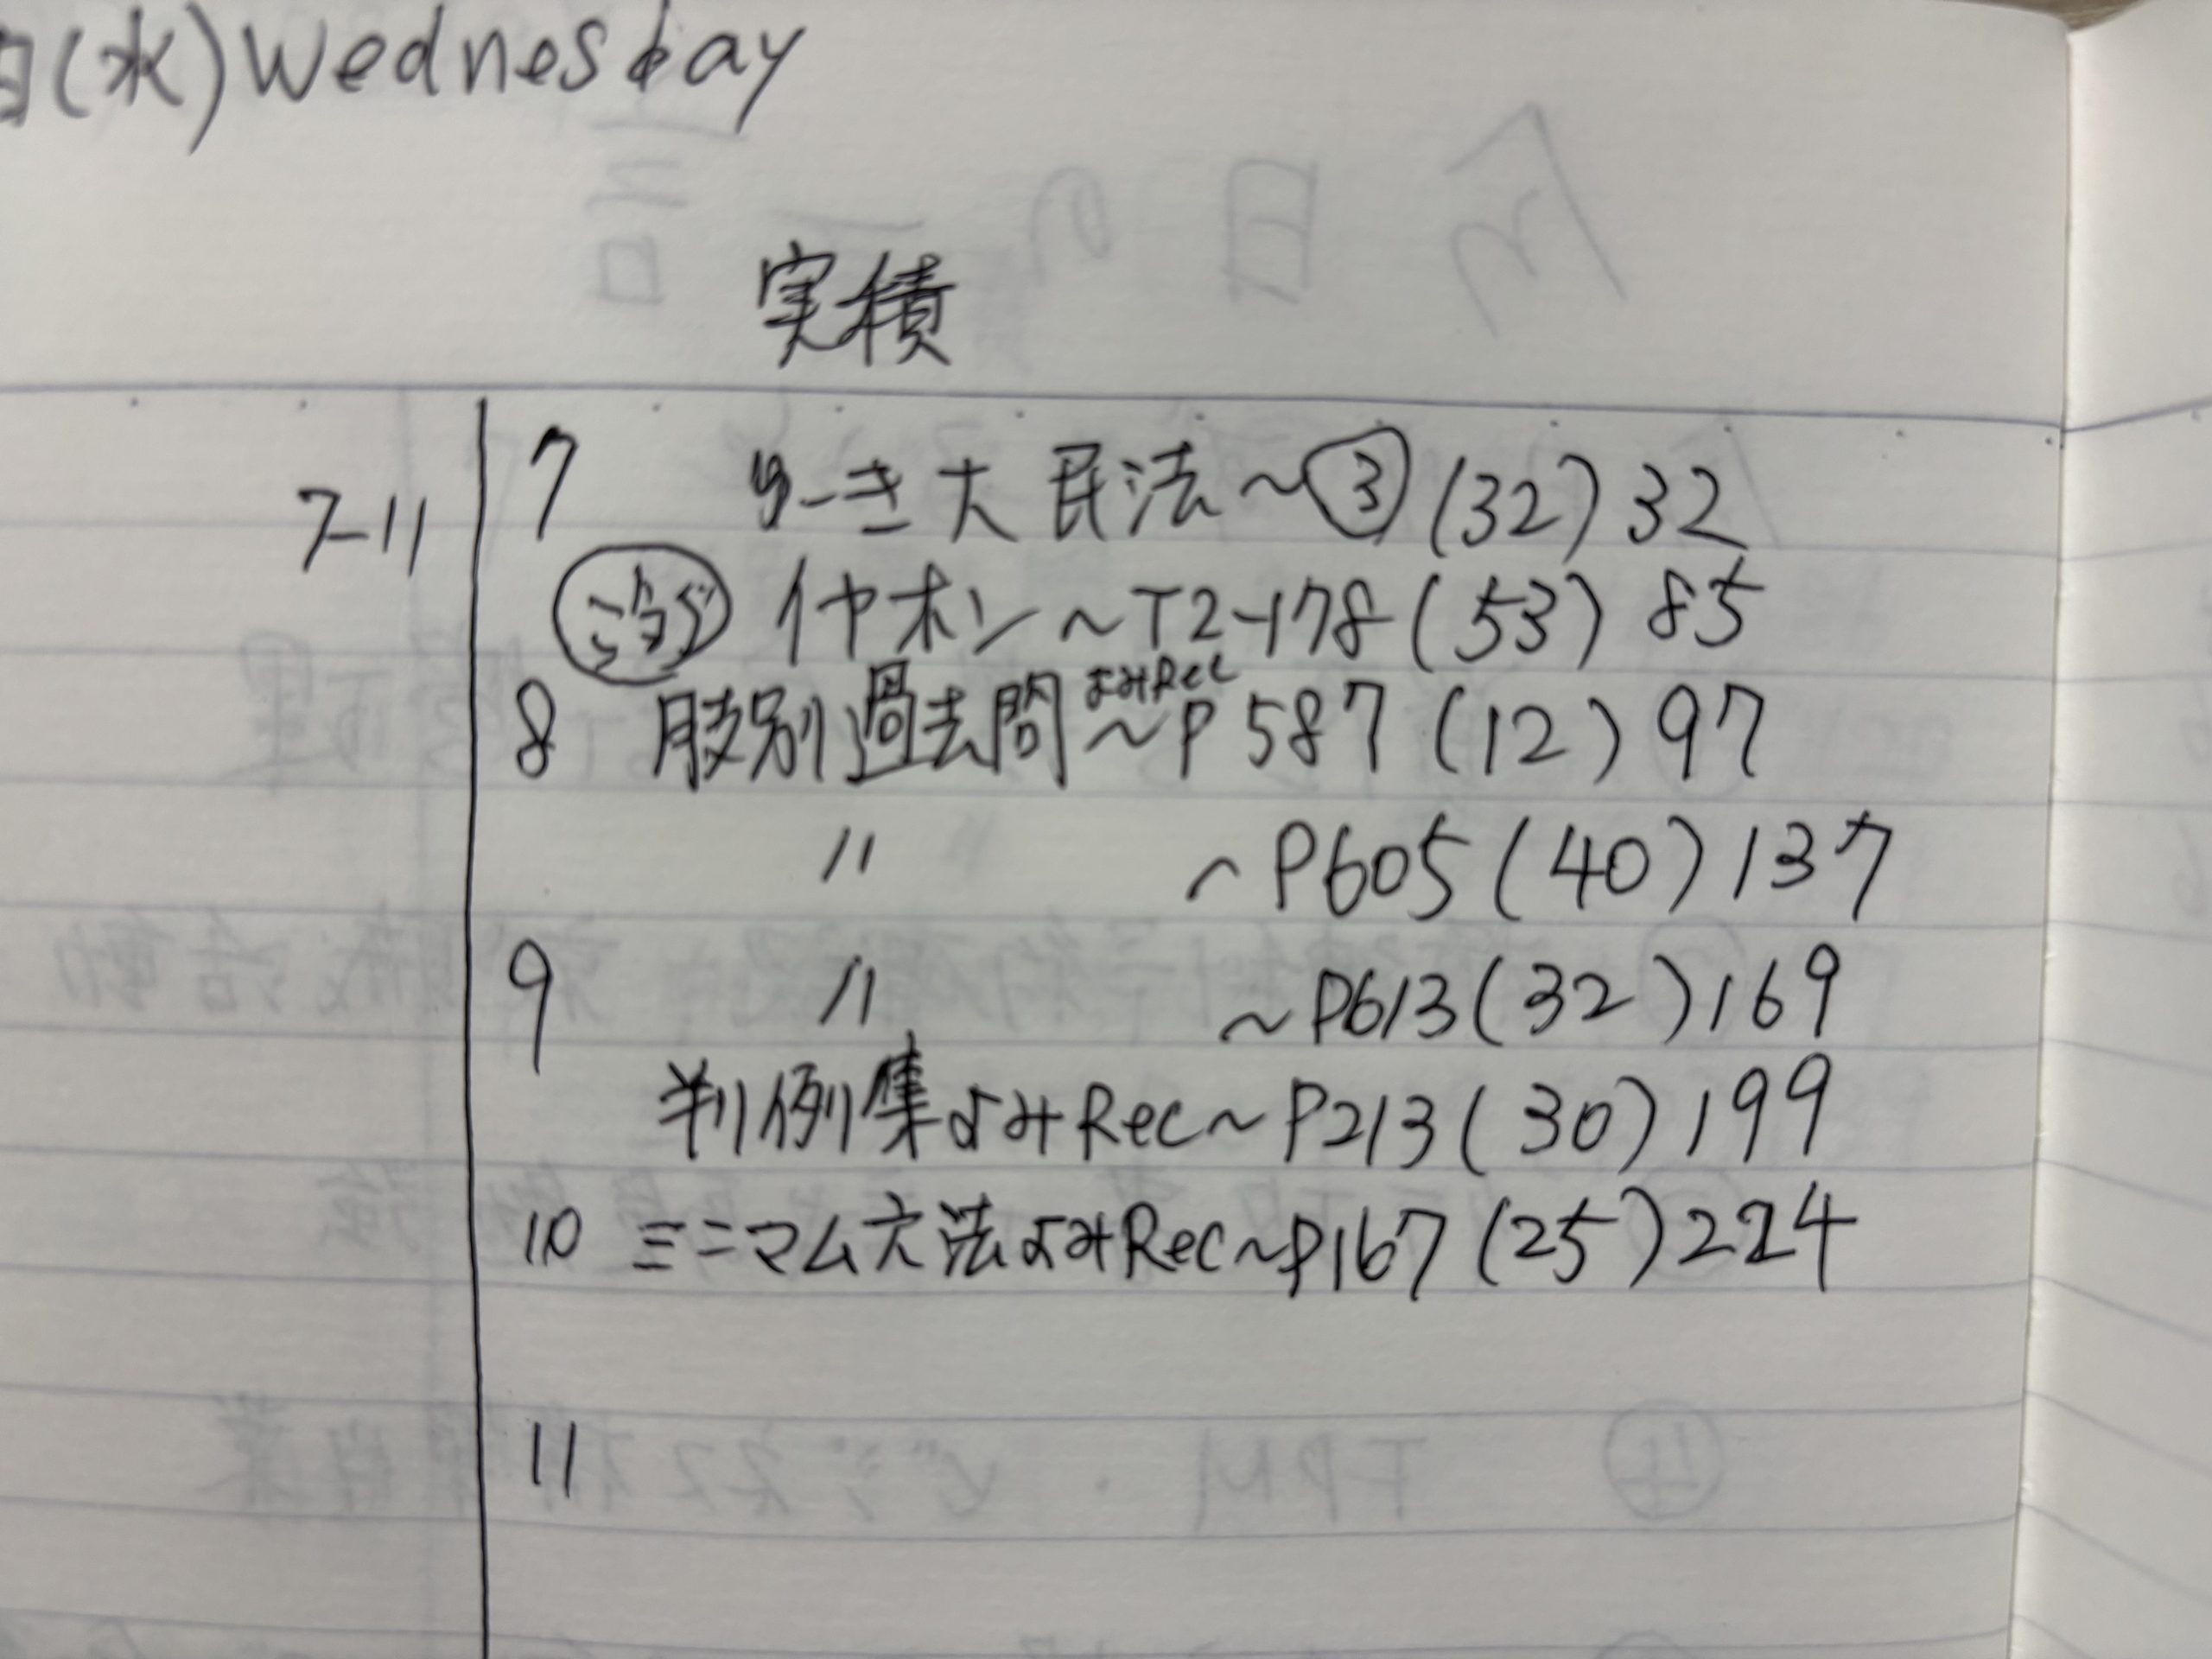 日(水)Wednesday
実積
7-11
7 ゆーき大民法~③(32)32
イヤホン~T2-178(53)85
よみRec
8 肢別過去問~P587(12)97
〃 ~P605(40)137
9 〃 ~P613(32)169
判例集よみRec~P213(30)199
10 ミニマム六法よみRec~P167(25)224
11